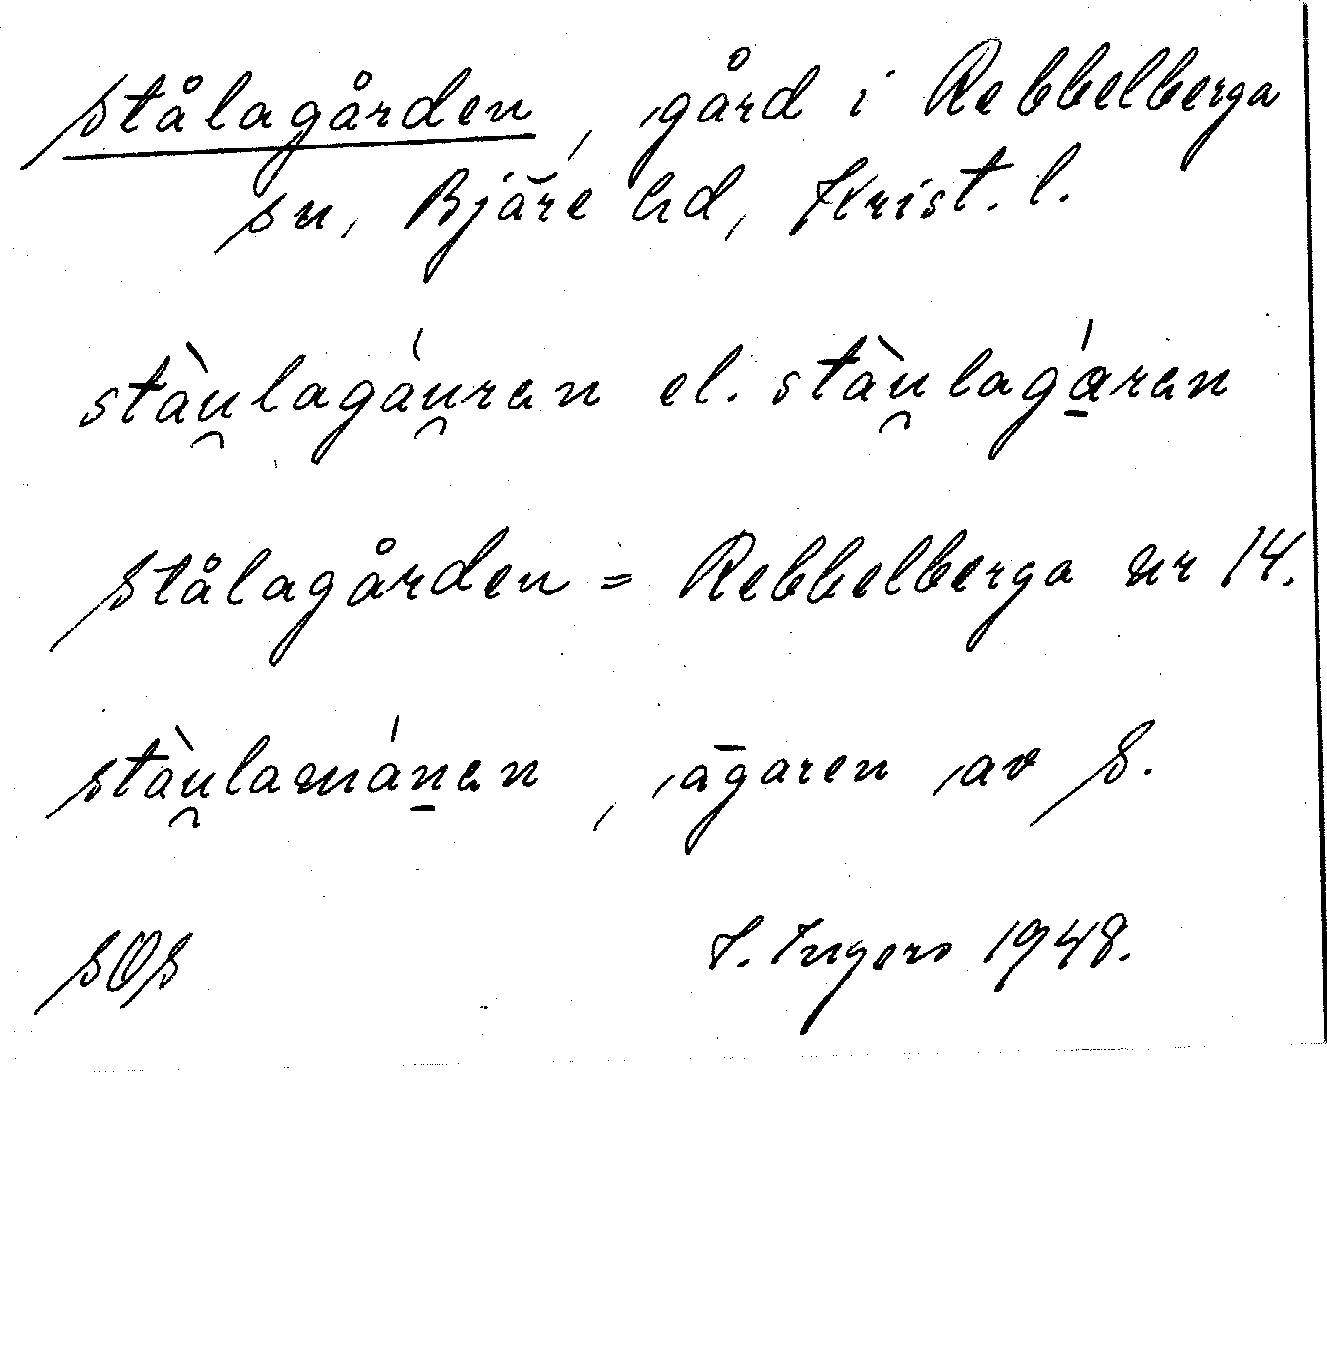 Stålagården, gård i Rebbelberga
sn, Bjäre hd, Krist. l.
stàu̯lagáu̯ren el. stàu̯lagá̱ren
Stålagården = Rebbelberga nr 14.
stàu̯lamáṉen, ägaren av S.
SOS I. Ingers 1948.